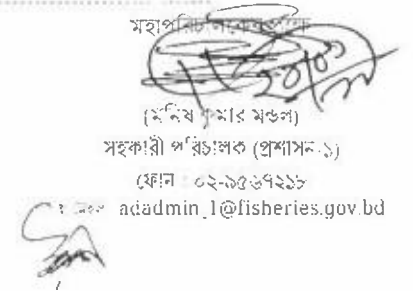 মহাপরিচালকের পক্ষে
২০/০১
(মনিষ কুমার মন্ডল)
সহকারী পরিচালক (প্রশাসন-১)
ফোন : ০২-৯৫৬৭২১৮
adadmin_1@fisheries.gov.bd